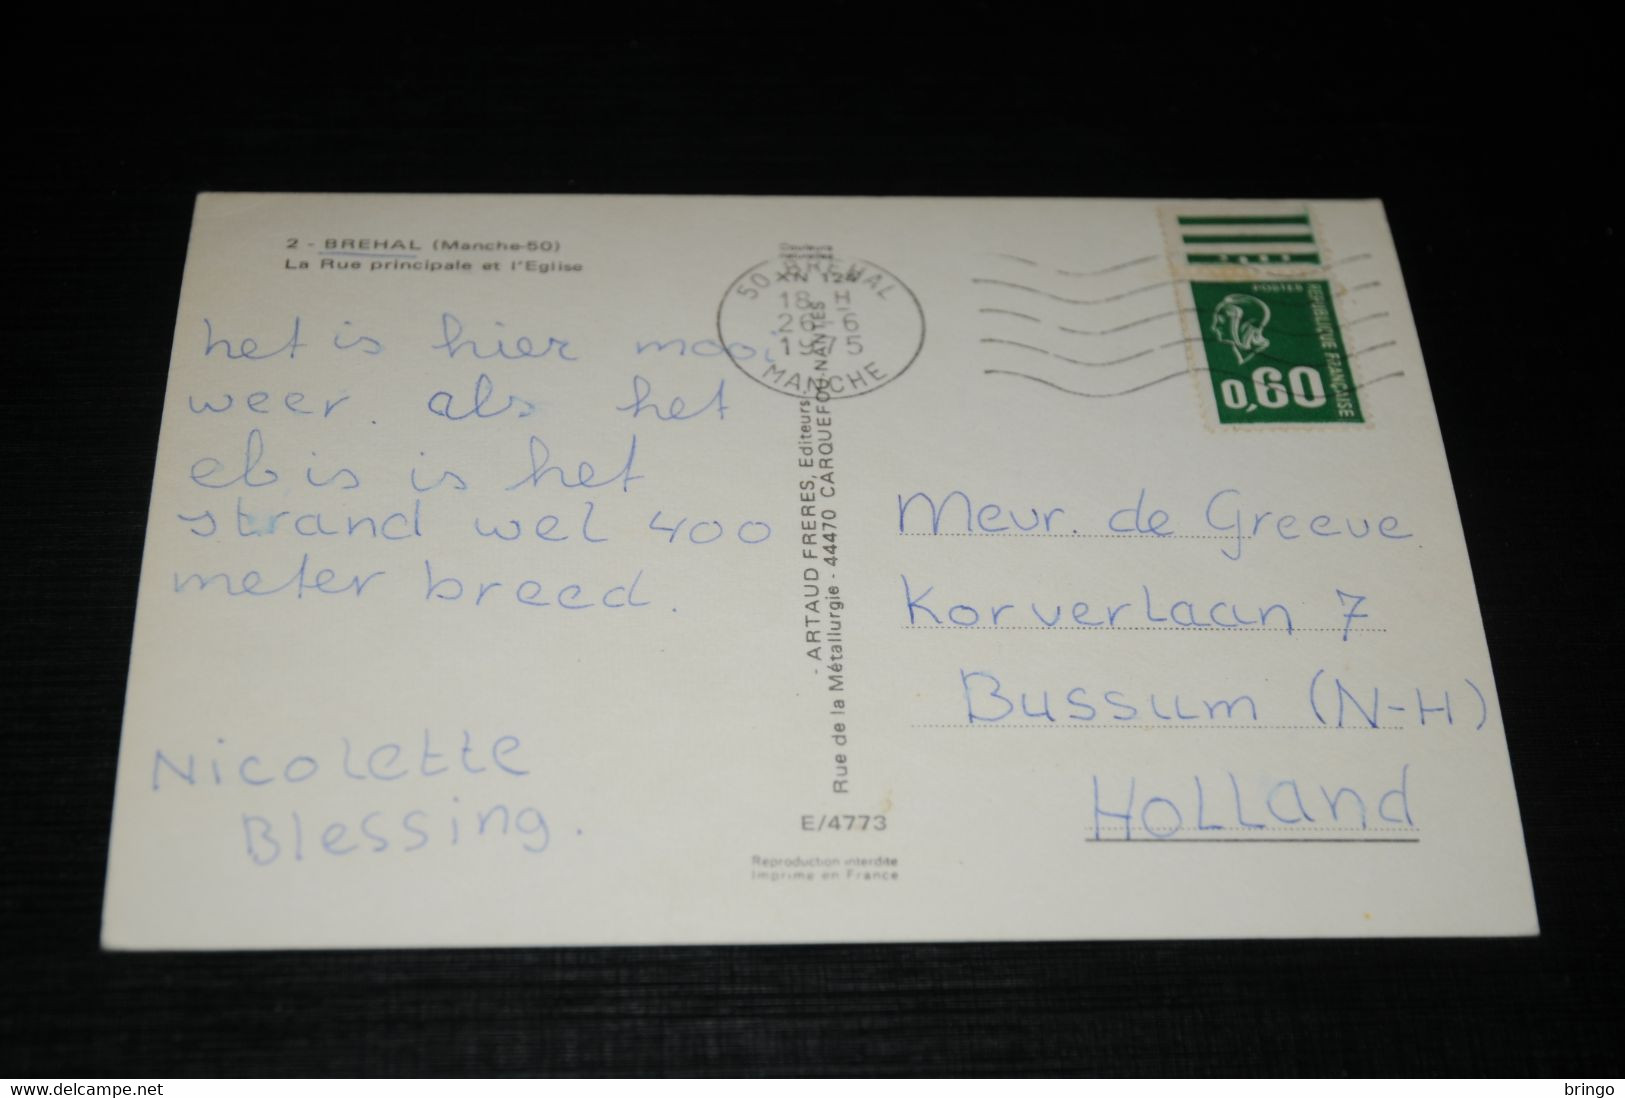 2 - BREHAL (Manche-50)
La Rue principale et l'Eglise
het is hier mooi
weer. als het
eb is is het
strand wel 400
meter breed.
Nicolette
Blessing.
50 BREHAL
18 H
1975
MANCHE
- ARTAUD FRERES, Editeurs
Rue de la Métallurgie - 44470 CARQUEFOU-NANTES
E/4773
Reproduction interdite
Imprimé en France
POSTES
REPUBLIQUE FRANCAISE
0,60
Meur. de Greeve
Korverlaan 7
Bussum (N-H)
HOLLAnd
www.delcampe.net
bringo